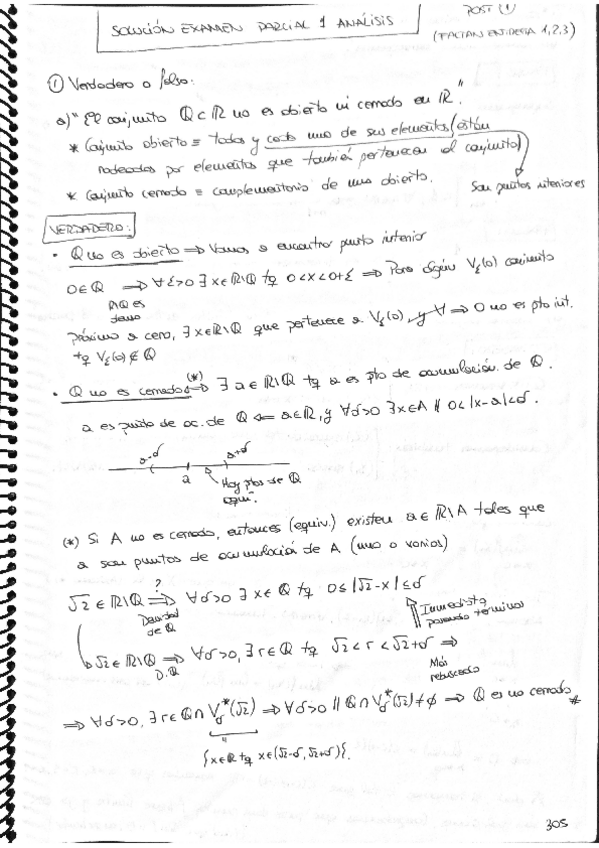 SOLUCIÓN EXAMEN PARCIAL 1 ANÁLISIS
POST (1)
(FALTAN ENTIDERIA 1,2,3)
① Verdadero o falso:
a) "El conjunto Q ⊂ R no es abierto ni cerrado en R."
* Conjunto abierto ≡ todos y cada uno de sus elementos (están
rodeados por elementos que también pertenecen al conjunto)
* Conjunto cerrado ≡ complementario de uno abierto.
Son puntos interiores
VERDADERO:
· Q no es abierto ⇒ Vamos a encontrar punto interior
0 ∈ Q ⇒ ∀ε>0 ∃ x ∈ R\Q tq 0<x<0+ε ⇒ Para algún Vε(0) conjunto
R\Q es
denso
próximo a cero, ∃ x ∈ R\Q que pertenece a Vε(0), y ∀ ⇒ 0 no es pto int.
tq Vε(0) ∉ Q
· Q no es cerrado ⇔ (*) ∃ a ∈ R\Q tq a es pto de acumulación de Q.
a es punto de ac. de Q ⇐ a ∈ R, y ∀δ>0 ∃x∈A // 0<|x-a|<δ.
a-δ a a+δ
Hay ptos de Q
aquí.
(*) Si A no es cerrado, entonces (equiv.) existen a ∈ R\A tales que
a son puntos de acumulación de A (uno o varios)
√2 ∈ R\Q ?⇒ ∀δ>0 ∃ x ∈ Q tq 0≤|√2-x|≤δ
Densidad
de Q
Inmediato
pasando términos
√2 ∈ R\Q ⇒ ∀δ>0, ∃ r ∈ Q tq √2 < r < √2+δ ⇒
D.Q
Más
rebuscado
⇒ ∀δ>0, ∃ r ∈ Q ∩ V*δ(√2) ⇒ ∀δ>0 // Q ∩ V*δ(√2) ≠ ∅ ⇒ Q es no cerrado *
{x∈R tq x∈(√2-δ, √2+δ)}.
305